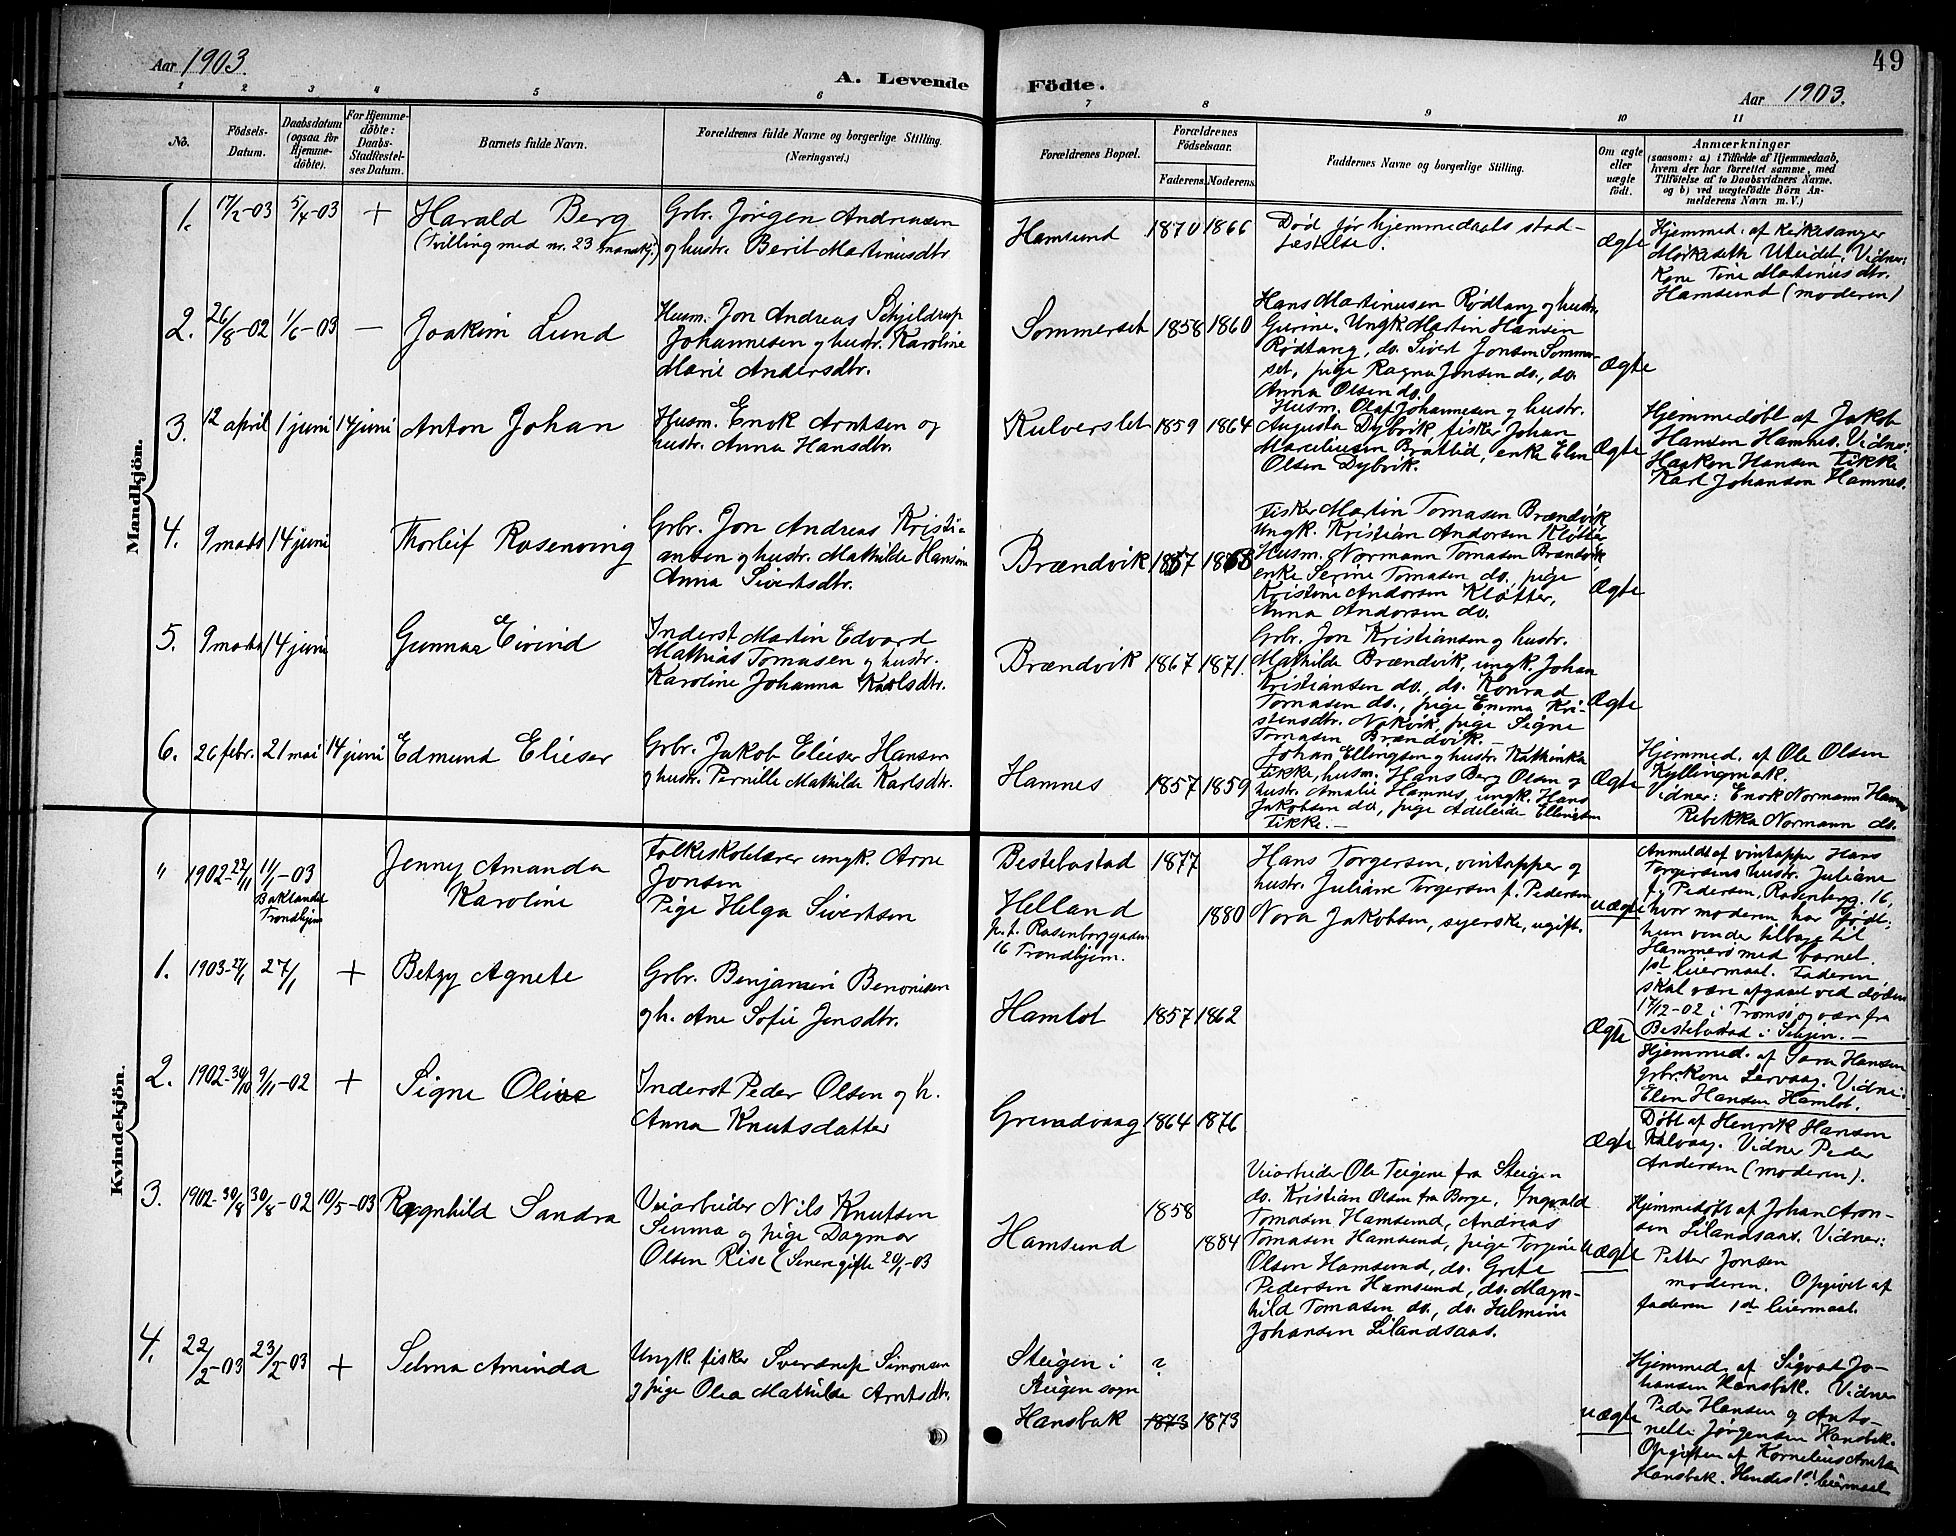 49
Aar 1903.
A. Levende Födte.
Aar 1903.
1 2 3 4 5 6 7 8 9 10 11
No.
Födsels-
Datum.
Daabsdatum
(ogsaa for
Hjemme-
döbte).
For Hjemme-
döbte:
Daabs-
Stadfæstel-
ses Datum.
Barnets fulde Navn.
Forældrenes fulde Navne og borgerlige Stilling.
(Næringsvei.)
Forældrenes Bopæl.
Forældrenes
Födselsaar.
Faderens. Moderens.
Faddernes Navne og borgerlige Stilling.
Om ægte
eller
uægte
födt.
Anmærkninger
(saasom: a) i Tilfælde af Hjemmedaab,
hvem der har forrettet samme, med
Tilföielse af to Daabsvidners Navne,
og b) ved uægtefödte Börn An-
melderens Navn m. V.)
Mandkjön.
1. 17/2-03 5/4-03 +
Harald Berg
(Tvilling med nr. 23 mandkj.)
Grbr. Jørgen Andreasen
og hustr. Berit Martinusdtr.
Hamsund 1870 1866
Død før hjemmedaabs stad-
fæstelse.
Ægte
Hjemmed. af kirkesanger
Mørkeseth Uteidet. Vidner:
Kone Tine Martinusdtr.
Hamsund (moderen)
2. 26/8-02 1/6-03 —
Joakim Lund
Husm. Jon Andreas Schjeldrup
Johannesen og hustr. Karoline
Marie Andersdtr.
Sommerset 1858 1860
Hans Martinusen Rødtang og hustr.
Gurine. Ungk. Martin Hansen
Rødtang, do. Sivert Jonsen Sommer-
set, pige Ragna Jonsen do., do.
Anna Olsen do.
Ægte
3. 12 april 1 juni 14 juni
Anton Johan
Husm. Enok Arntsen og
hustr. Anna Hansdtr.
Kulverslet 1859 1864
Husm. Olaf Johannesen og hustr.
Augusta Dybvik, fisker Johan
Marceliusen Brattlid, enke Elen
Olsen Dybvik.
Ægte
Hjemmedøbt af Jakob
Hansen Hamnes. Vidner:
Haakon Hansen Fikke
Karl Johansen Hamnes.
4. 9 marts 14 juni
Thorleif Rosenving
Grbr. Jon Andreas Kristi-
ansen og hustr. Mathilde Hansine
Anna Sivertsdtr.
Brændvik 1857 1868
Fisker Martin Tomasen Brændvik
Ungk. Kristian Andorsen Kløtter
Husm. Normann Tomasen Brændvik
enke Serine Tomasen do., pige
Kristine Andorsen Kløtter,
Anna Andorsen do.
Ægte
5. 9 marts 14 juni
Gunnar Eivind
Inderst Martin Edvard
Mathias Tomasen og hustr.
Karoline Johanna Karlsdtr.
Brændvik 1867 1871.
Grbr. Jon Kristiansen og hustr.
Mathilde Brændvik, ungk. Johan
Kristiansen do., do. Konrad
Tomasen do., pige Emma Kri-
stensdtr. Nakvik, pige Signe
Tomasen Brændvik.—
Ægte
6. 26 febr. 21 mai 14 juni
Edmund Elieser
Grbr. Jakob Elieser Hansen
og hustr. Pernille Mathilde Karlsdtr.
Hamnes 1857 1859
Johan Ellingsen og hustr. Kathinka
Fikke, husm. Hans Berg Olsen og
hustr. Amalie Hamnes, ungk. Hans
Jakobsen do., pige Adeleide Ellingsen
Fikke.—
Ægte
Hjemmed. af Ole Olsen
Kyllingmark.
Vidner: Enok Normann Hamnes
Rebekka Normann do.
Kvindekjön.
" 1902-22/11 11/1-03
Baklandet
Trondhjem
Jenny Amanda
Karoline
Folkeskolelærer ungk. Arne
Jonsen
Pige Helga Sivertsen
Bestebostad 1877
Helland 1880
p. t. Rosenborggaden
16 Trondhjem.
Hans Torgersen, vintapper og
hustr. Juliane Torgersen f. Pedersen
Nora Jakobsen, syerske, ugift.
uægte
Anmeldt af vintapper Hans
Torgersens hustr. Juliane
f. Pedersen, Rosenborg. 16,
hvor moderen har født;
hun vender tilbage til
Hammerø med barnet.
1st leiermaal. Faderen
skal være afgaaet ved døden
17/12-02 i Tromsø og være fra
Bestebostad i Senjen.—
1. 1903-27/1 27/1 +
Betzy Agnete
Grbr. Benjamin Benonisen
og h. Ane Sofie Jensdtr.
Hamlot 1857 1862
Ægte
Hjemmed. af Sara Hansen
grbr.kone Lervaag. Vidne:
Elen Hansen Hamlot.
2. 1902-30/10 9/11-02 +
Signe Olive
Inderst Peder Olsen og h.
Anna Knutsdatter
Grundvaag 1864 1876
Ægte
Døbt af Henrik Hansen
Kalvaag. Vidner Peder
Andersen (moderen).
3. 1902-30/8 30/8-02 10/5-03
Ragnhild Sandra
Veiarbeider Nils Knutsen
Senna og pige Dagmar
Olsen Rise (Senere gifte 20/1-03
Hamsund 1858 1884
Veiarbeider Ole Teigene fra Steigen
do. Kristian Olsen fra Borge, Ingvald
Tomasen Hamsund, Andreas
Tomasen Hamsund, pige Torgine
Olsen Hamsund, do. Grete
Pedersen Hamsund, do. Magn-
hild Tomasen do., do. Halmine
Johansen Lilandsaas.
uægte
Hjemmedøbt af Johan Aron-
sen Lilandsaas. Vidner:
Petter Jonsen
moderen. Opgivet af
faderen 1st leiermaal.
4. 22/2-03 23/2-03 +
Selma Aminda
Ungk. fisker Sverdrup Simonsen
og pige Olea Mathilde Arntsdtr.
Steigen i ?
Steigen sogn
Hansbak 1873 1873
uægte
Hjemmed. af Sigvat Jo-
hansen Hansbak. Vidner
Peder Hansen og Anto-
nette Jørgensen Hansbak.
Opgiften af Kornelius Arntsen
Hansbak. Hendes 1st leiermaal